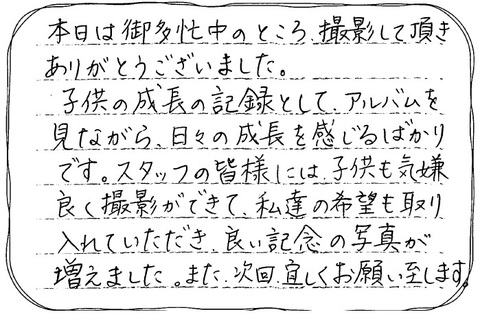 本日は御多忙中のところ、撮影して頂き
ありがとうございました。
子供の成長の記録として、アルバムを
見ながら、日々の成長を感じるばかり
です。スタッフの皆様には、子供も気嫌
良く撮影ができて、私達の希望も取り
入れていただき、良い記念の写真が
増えました。また、次回、宜しくお願い至します。